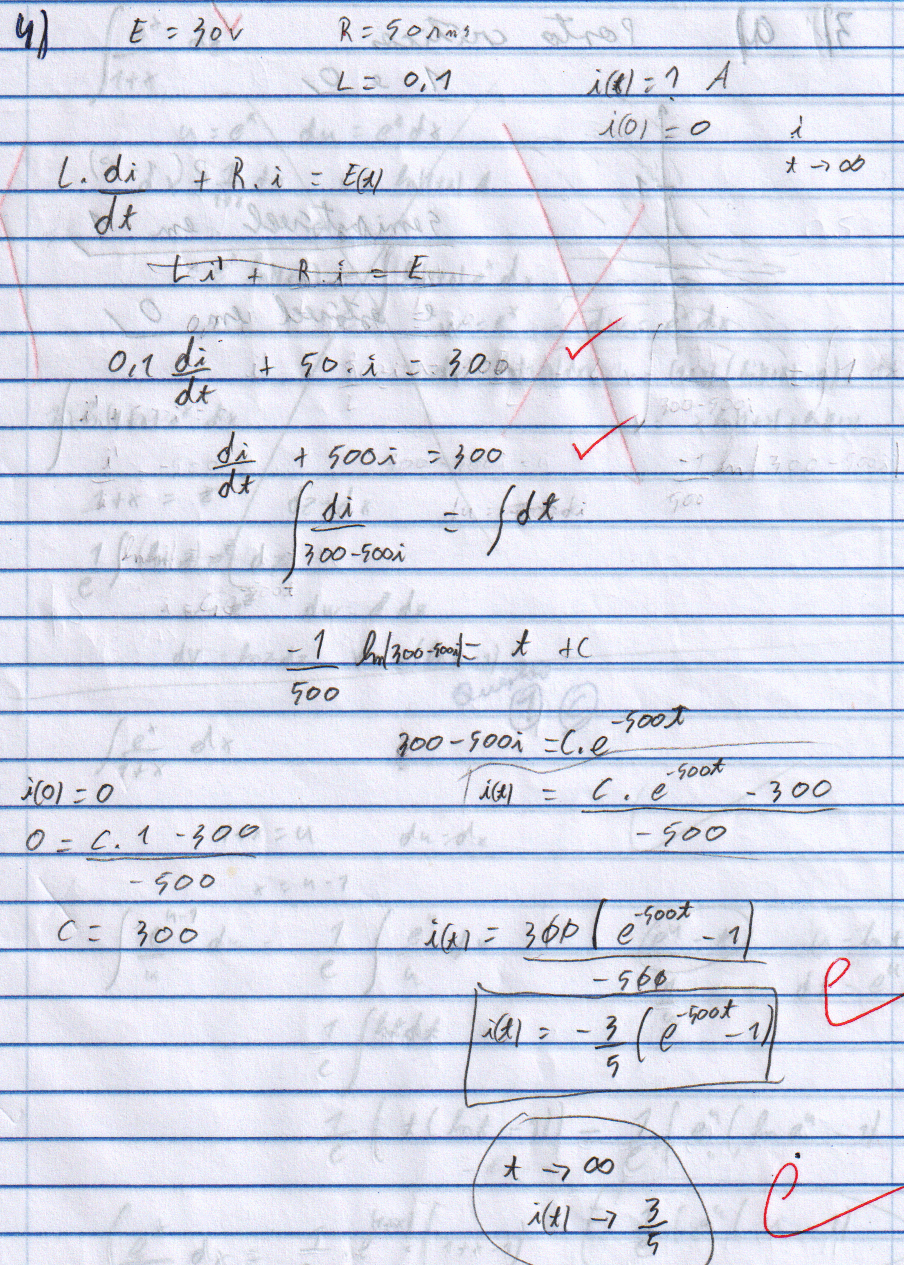 4) E = 30v R = 50
L = 0,1 i(t) = ? A
i(0) = 0 i
t → ∞
L. di/dt + R. i = E(t)
Li' + R. i = E
0,1 di/dt + 50. i = 300
di/dt + 500i = 300
∫ di/(300-500i) = ∫ dt
-1/500 ln|300-500i| = t + C
300-500i = C. e^-500t
i(0) = 0 i(t) = (C. e^-500t - 300)/-500
0 = (C. 1 - 300)/-500
C = 300 i(t) = 300(e^-500t - 1)/-500
i(t) = -3/5 (e^-500t - 1)
t → ∞
i(t) → 3/5